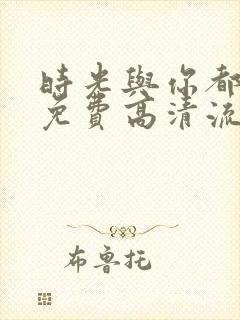 時光與你都
免費高清流
布魯托